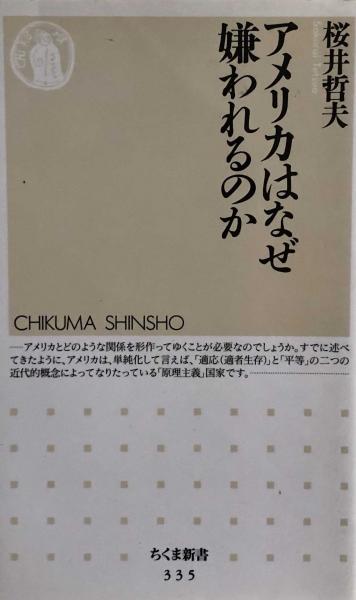 桜井哲夫
Sakurai Tetsuo
アメリカはなぜ
嫌われるのか
CHIKUMA SHINSHO
──アメリカとどのような関係を形作ってゆくことが必要なのでしょうか。すでに述べ
てきたように、アメリカは、単純化して言えば、「適応(適者生存)」と「平等」の二つの
近代的概念によってなりたっている「原理主義」国家です。
ちくま新書
335